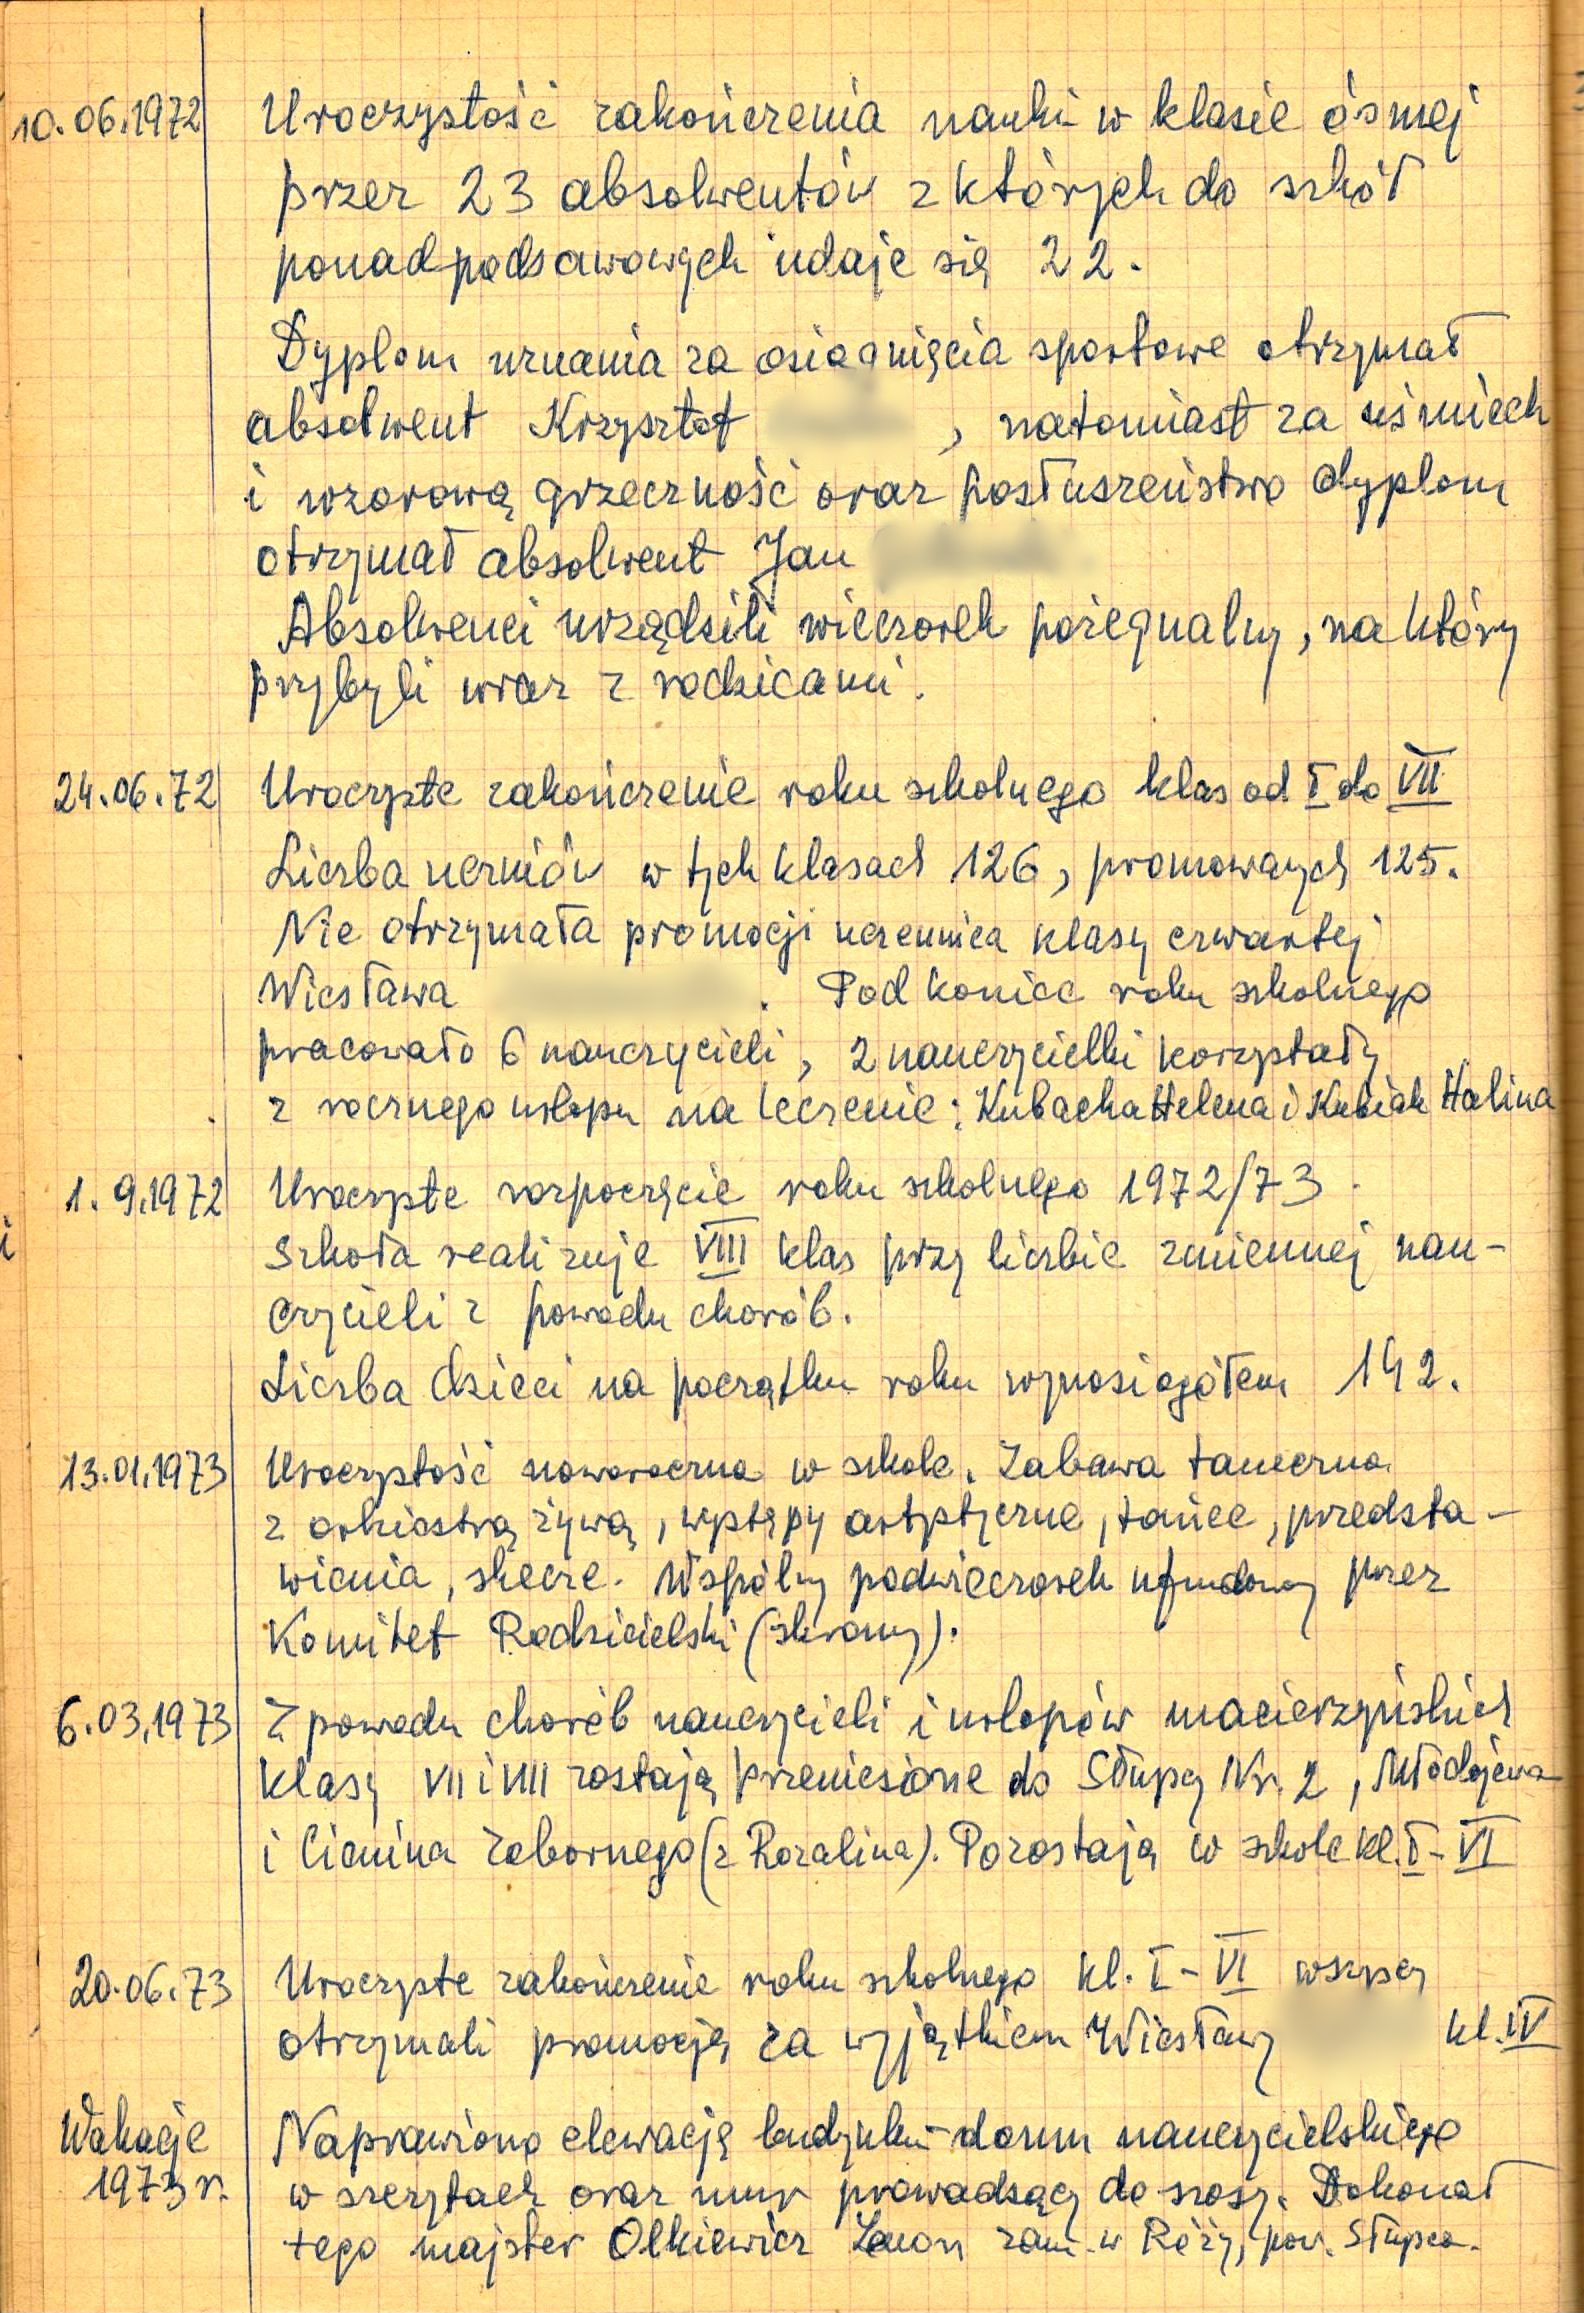 10.06.1972 Uroczystość zakończenia nauki w klasie ósmej
przez 23 absolwentów z których do szkół
ponadpodsawowych udaje się 22.
Dyplom uznania za osiągnięcia sportowe otrzymał
absolwent Krzysztof , natomiast za uśmiech
i wzorową grzeczność oraz posłuszeństwo dyplom
otrzymał absolwent Jan
Absolwenci urządzili wieczorek pożegnalny, na który
przybyli wraz z rodzicami.
24.06.72 Uroczyste zakończenie roku szkolnego klas od I do VII
Liczba uczniów w tych klasach 126, promowanych 125.
Nie otrzymała promocji uczennica klasy czwartej
Wiesława . Pod koniec roku szkolnego
pracowało 6 nauczycieli, 2 nauczycielki korzystały
z rocznego urlopu na leczenie: Kubacka Helena i Kubiak Halina
1.9.1972 Uroczyste rozpoczęcie roku szkolnego 1972/73.
Szkoła realizuje VIII klas przy liczbie zmiennej nau-
czycieli z powodu chorób.
Liczba dzieci na początku roku wynosi ogółem 142.
13.01.1973 Uroczystość noworoczna w szkole. Zabawa taneczna
z orkiestrą żywą, występy artystyczne, tańce, przedsta-
wienia, skecze. Wspólny podwieczorek ufundowany przez
Komitet Rodzicielski (skromny).
6.03.1973 Z powodu chorób nauczycieli i urlopów macierzyńskich
klasy VII i VIII zostają przeniesione do Słupcy Nr. 2, Młodojewa
i Cienina Zabornego (z Rozalina). Pozostają w szkole kl. I-VI
20.06.73 Uroczyste zakończenie roku szkolnego kl. I-VI wszyscy
otrzymali promocję za wyjątkiem Wiesławy kl. IV
Wakacje Naprawiono elewację budynku domu nauczycielskiego
1973 r. w szczytach oraz mur prowadzący do szosy. Dokonał
tego majster Olkiewicz Zenon zam. w Róży, pow. Słupca.